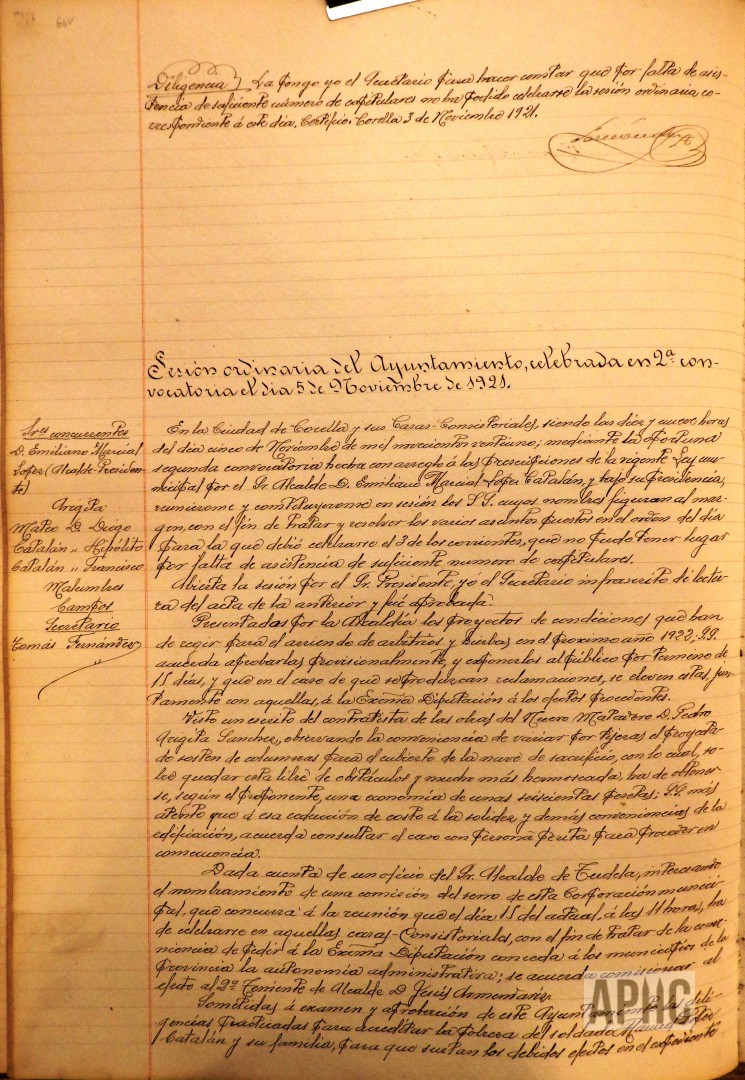 Diligencia} La pongo yo el Secretario para hacer constar que por falta de asis-
tencia de suficiente número de capitulares no ha podido celebrarse la sesión ordinaria co-
rrespondiente á este día. Certifico. Corella 3 de Noviembre 1921.
Fernández
Sesión ordinaria del Ayuntamiento, celebrada en 2ª con-
vocatoria el dia 5 de Noviembre de 1921.
Sres concurrentes
D. Emiliano Marcial
Lopez (Alcalde-Presiden-
te)
Arigita
Mateo D. Diego
Catalán „ Hipólito
Catalán „ Francisco
Malumbres
Campos
Secretario
Tomás Fernández
En la Ciudad de Corella y sus Casas-Consistoriales, siendo las diez y nueve horas
del dia cinco de Noviembre de mil novecientos veintiuno; mediante la oportuna
segunda convocatoria hecha con arreglo á las prescripciones de la vigente Ley mu-
nicipal por el Sr. Alcalde D. Emiliano Marcial Lopez Catalán, y bajo su Presidencia,
reunieronse y constituyeronse en sesión los S.S. cuyos nombres figuran al mar-
gen, con el fin de tratar y resolver los varios asuntos puestos en el orden del dia
para la que debió celebrarse el 3 de los corrientes, que no pudo tener lugar
por falta de asistencia de suficiente numero de capitulares.
Abierta la sesión por el Sr. Presidente, yo el Secretario infrascrito dí lectu-
ra del acta de la anterior y fué aprobada.
Presentados por la Alcaldía los proyectos de condiciones que han
de regir para el arriendo de arbitrios y hierbas en el proximo año 1922; S.S.
acuerda aprobarlas provisionalmente, y exponerlos al público por termino de
15 dias, y que en el caso de que se produzcan reclamaciones, se eleven estas, jun-
tamente con aquellas, á la Excma Diputación á los efectos procedentes.
Visto un escrito del contratista de las obras del Nuevo Matadero D. Pedro
Arigita Sanchez, observando la conveniencia de variar por tijeras el proyecta-
do sosten de columnas para el cubierto de la nave de sacrificio, con lo cual, so-
bre quedar esta libre de obstáculos y mucho más hermoseada, ha de obtener-
se, según el proponente, una economía de unas seiscientas pesetas; S.S. más
atento que á esa reducción de costo á la solidez y demás conveniencias de la
edificación, acuerda consultar el caso con persona perita para proceder en
consecuencia.
Dada cuenta de un oficio del Sr. Alcalde de Tudela, interesando
el nombramiento de una comisión del seno de esta Corporación munici-
pal, que concurra á la reunión que el día 15 del actual, á las 11 horas, ha
de celebrarse en aquellas casas-Consistoriales, con el fin de tratar de la conve-
niencia de pedir á la Excma Diputación conceda á los municipios de la
Provincia la autonomia administrativa; se acuerda comisionar al
efecto al 2º Teniente de Alcalde D. Jesús Armendáriz.
Sometidas á examen y aprobación de este Ayuntamiento las dili-
gencias practicadas para acreditar la pobreza del soldado Manuel
Catalán y su familia, para que surtan los debidos efectos en el expediente
APHC